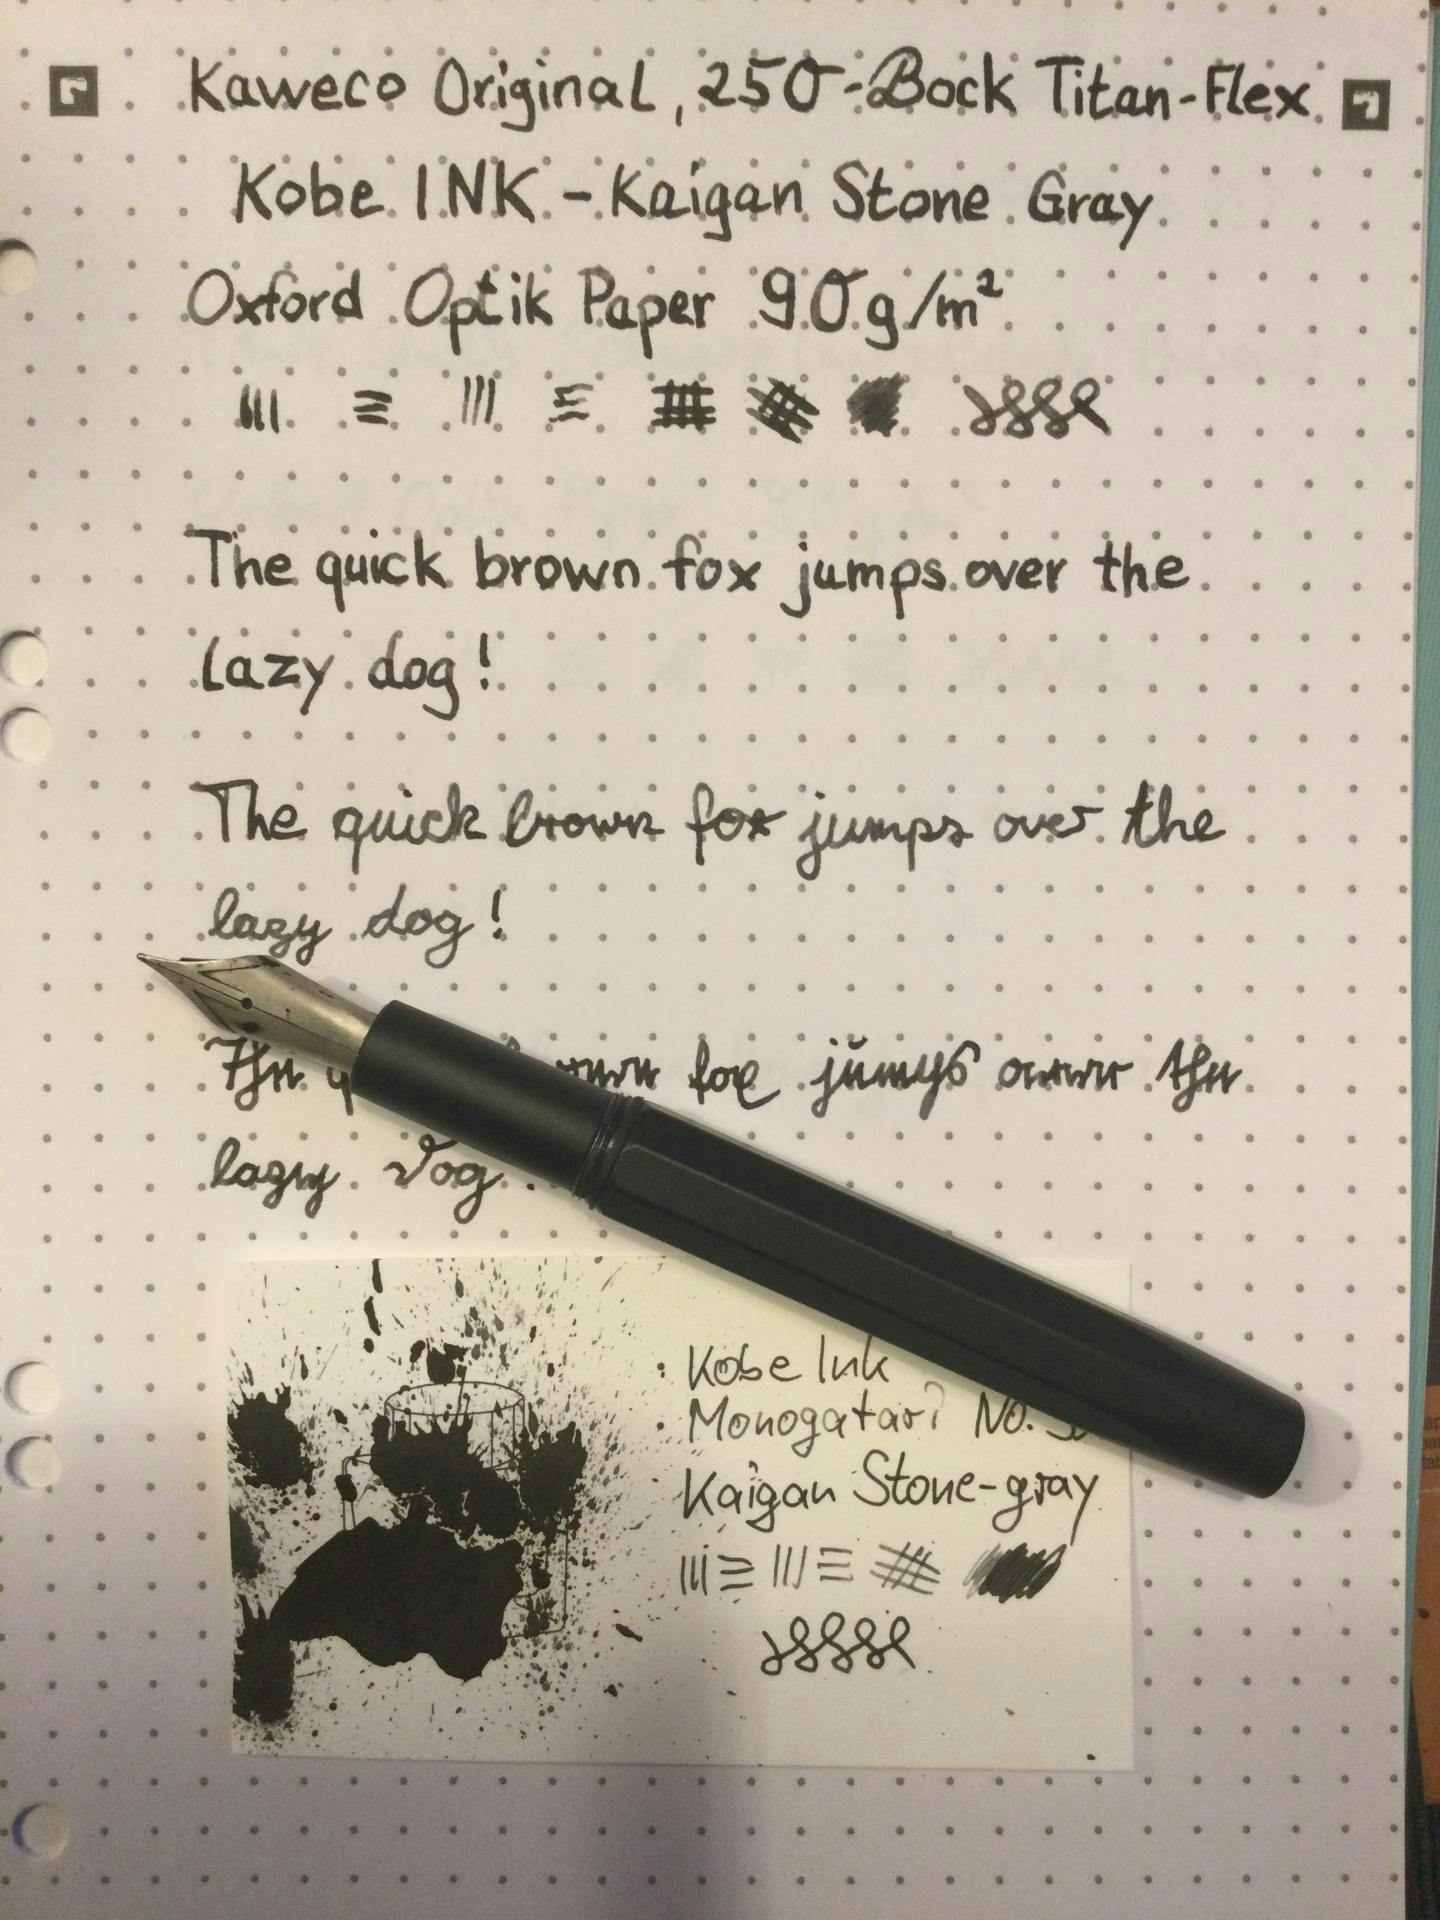 Kaweco Original, 250-Bock Titan-Flex
Kobe INK - Kaigan Stone Gray
Oxford Optik Paper 90g/m²
The quick brown fox jumps over the
lazy dog!
The quick brown fox jumps over the
lazy dog!
The fox jumps over the
lazy dog
Kobe Ink
Monogatari No.
Kaigan Stone-gray